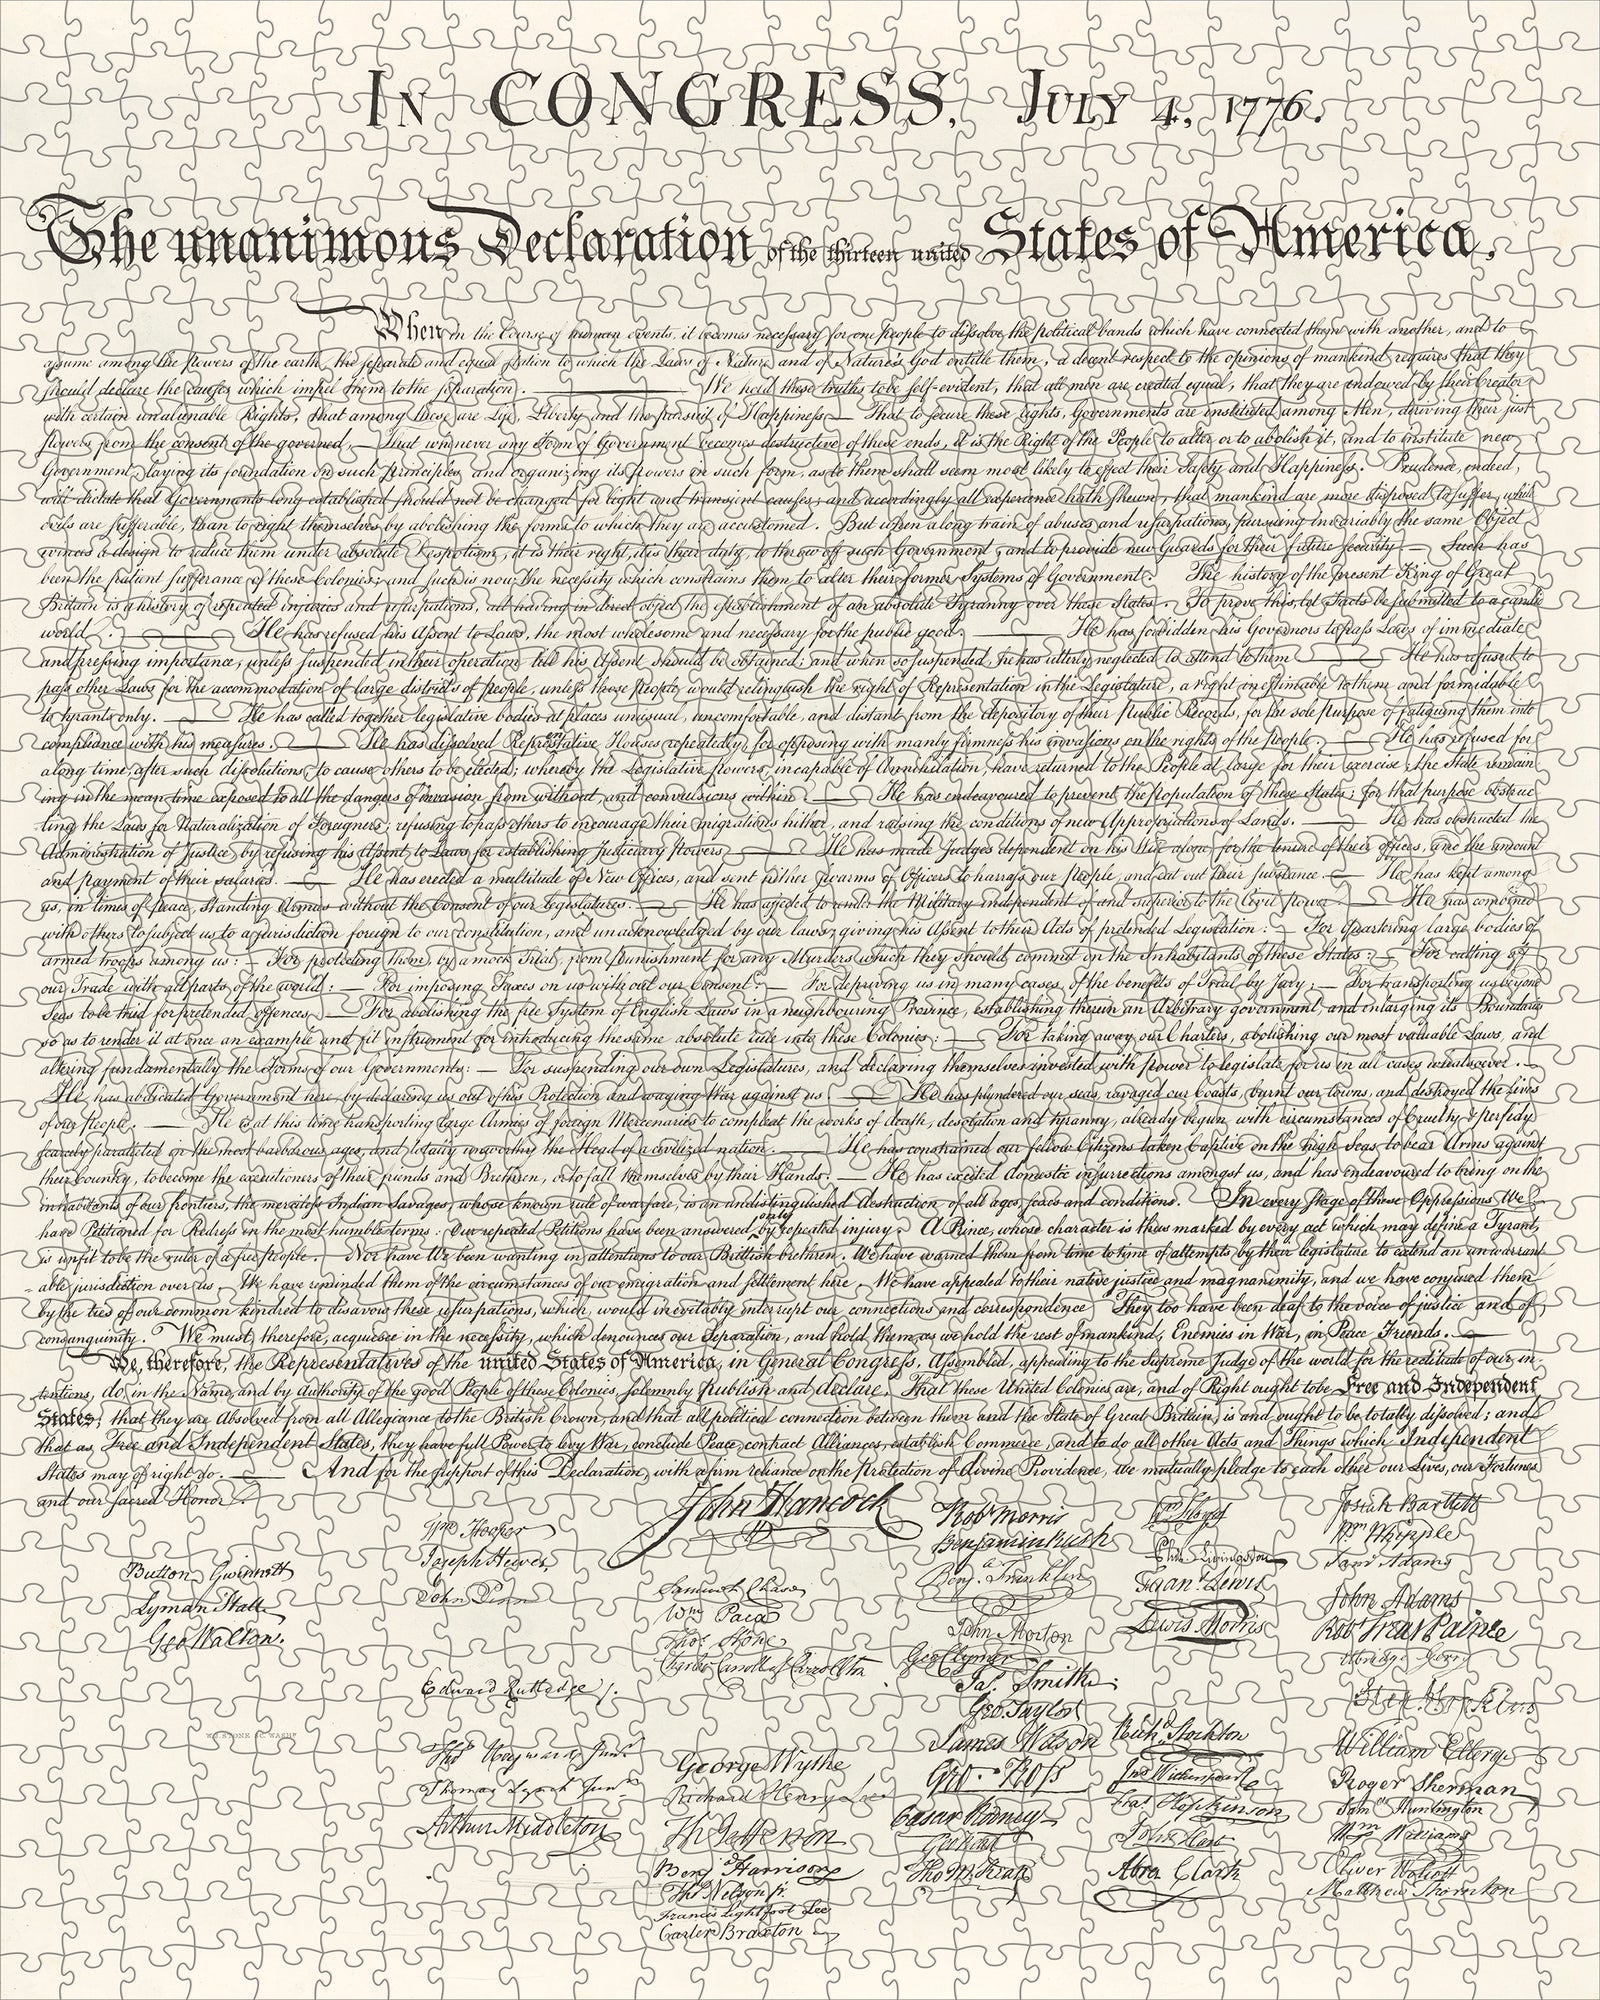 In CONGRESS, July 4, 1776.
The unanimous Declaration of the thirteen united States of America,
When in the Course of human events, it becomes necessary for one people to dissolve the political bands which have connected them with another, and to
assume among the powers of the earth, the separate and equal station to which the Laws of Nature and of Nature's God entitle them, a decent respect to the opinions of mankind requires that they
should declare the causes which impel them to the separation. ——— We hold these truths to be self-evident, that all men are created equal, that they are endowed by their Creator
with certain unalienable Rights, that among these are Life, Liberty and the pursuit of Happiness. — That to secure these rights, Governments are instituted among Men, deriving their just
powers from the consent of the governed, — That whenever any Form of Government becomes destructive of these ends, it is the Right of the People to alter or to abolish it, and to institute new
Government, laying its foundation on such principles and organizing its powers in such form, as to them shall seem most likely to effect their Safety and Happiness. Prudence, indeed,
will dictate that Governments long established should not be changed for light and transient causes; and accordingly all experience hath shewn, that mankind are more disposed to suffer, while
evils are sufferable, than to right themselves by abolishing the forms to which they are accustomed. But when a long train of abuses and usurpations, pursuing invariably the same Object
evinces a design to reduce them under absolute Despotism, it is their right, it is their duty, to throw off such Government, and to provide new Guards for their future security. — Such has
been the patient sufferance of these Colonies; and such is now the necessity which constrains them to alter their former Systems of Government. The history of the present King of Great
Britain is a history of repeated injuries and usurpations, all having in direct object the establishment of an absolute Tyranny over these States. To prove this, let Facts be submitted to a candid
world. ——— He has refused his Assent to Laws, the most wholesome and necessary for the public good. ——— He has forbidden his Governors to pass Laws of immediate
and pressing importance, unless suspended in their operation till his Assent should be obtained; and when so suspended, he has utterly neglected to attend to them. ——— He has refused to
pass other Laws for the accommodation of large districts of people, unless those people would relinquish the right of Representation in the Legislature, a right inestimable to them and formidable
to tyrants only. ——— He has called together legislative bodies at places unusual, uncomfortable, and distant from the depository of their Public Records, for the sole purpose of fatiguing them into
compliance with his measures. ——— He has dissolved Representative Houses repeatedly, for opposing with manly firmness his invasions on the rights of the people. ——— He has refused for
a long time, after such dissolutions, to cause others to be elected; whereby the Legislative powers, incapable of Annihilation, have returned to the People at large for their exercise; the State remain
ing in the mean time exposed to all the dangers of invasion from without, and convulsions within. ——— He has endeavoured to prevent the population of these States; for that purpose obstruc
ting the Laws for Naturalization of Foreigners; refusing to pass others to encourage their migrations hither, and raising the conditions of new Appropriations of Lands. ——— He has obstructed the
Administration of Justice, by refusing his Assent to Laws for establishing Judiciary powers. ——— He has made Judges dependent on his Will alone, for the tenure of their offices, and the amount
and payment of their salaries. ——— He has erected a multitude of New Offices, and sent hither swarms of Officers to harrass our people, and eat out their substance. — He has kept among
us, in times of peace, Standing Armies without the Consent of our legislatures. — He has affected to render the Military independent of and superior to the Civil power. — He has combined
with others to subject us to a jurisdiction foreign to our constitution, and unacknowledged by our laws; giving his Assent to their Acts of pretended Legislation: — For Quartering large bodies of
armed troops among us: — For protecting them, by a mock Trial, from punishment for any Murders which they should commit on the Inhabitants of these States: — For cutting off
our Trade with all parts of the world: — For imposing Taxes on us without our Consent: — For depriving us in many cases, of the benefits of Trial by Jury; — For transporting us beyond
Seas to be tried for pretended offences — For abolishing the free System of English Laws in a neighbouring Province, establishing therein an Arbitrary government, and enlarging its Boundaries
so as to render it at once an example and fit instrument for introducing the same absolute rule into these Colonies: — For taking away our Charters, abolishing our most valuable Laws, and
altering fundamentally the Forms of our Governments: — For suspending our own Legislatures, and declaring themselves invested with power to legislate for us in all cases whatsoever. —
He has abdicated Government here, by declaring us out of his Protection and waging War against us. — He has plundered our seas, ravaged our Coasts, burnt our towns, and destroyed the lives
of our people. — He is at this time transporting large Armies of foreign Mercenaries to compleat the works of death, desolation and tyranny, already begun with circumstances of Cruelty & perfidy
scarcely paralleled in the most barbarous ages, and totally unworthy the Head of a civilized nation. — He has constrained our fellow Citizens taken Captive on the high Seas to bear Arms against
their Country, to become the executioners of their friends and Brethren, or to fall themselves by their Hands. — He has excited domestic insurrections amongst us, and has endeavoured to bring on the
inhabitants of our frontiers, the merciless Indian Savages, whose known rule of warfare, is an undistinguished destruction of all ages, sexes and conditions. In every stage of these Oppressions We
have Petitioned for Redress in the most humble terms: Our repeated Petitions have been answered only by repeated injury. A Prince, whose character is thus marked by every act which may define a Tyrant,
is unfit to be the ruler of a free people. Nor have We been wanting in attentions to our Brittish brethren. We have warned them from time to time of attempts by their legislature to extend an unwarrant
able jurisdiction over us. We have reminded them of the circumstances of our emigration and settlement here. We have appealed to their native justice and magnanimity, and we have conjured them
by the ties of our common kindred to disavow these usurpations, which, would inevitably interrupt our connections and correspondence. They too have been deaf to the voice of justice and of
consanguinity. We must, therefore, acquiesce in the necessity, which denounces our Separation, and hold them, as we hold the rest of mankind, Enemies in War, in Peace Friends. —
We, therefore, the Representatives of the united States of America, in General Congress, Assembled, appealing to the Supreme Judge of the world for the rectitude of our in
tentions, do, in the Name, and by Authority of the good People of these Colonies, solemnly publish and declare, That these United Colonies are, and of Right ought to be Free and Independent
States; that they are Absolved from all Allegiance to the British Crown, and that all political connection between them and the State of Great Britain, is and ought to be totally dissolved; and
that as Free and Independent States, they have full Power to levy War, conclude Peace, contract Alliances, establish Commerce, and to do all other Acts and Things which Independent
States may of right do. — And for the support of this Declaration, with a firm reliance on the Protection of divine Providence, we mutually pledge to each other our Lives, our Fortunes
and our sacred Honor.
Button Gwinnett
Lyman Hall
Geo Walton.
Wm Hooper
Joseph Hewes,
John Penn
Edward Rutledge /.
Thos Heyward Junr.
Thomas Lynch Junr.
Arthur Middleton
John Hancock
Samuel Chase
Wm Paca
Thos Stone
Charles Carroll of Carrollton
George Wythe
Richard Henry Lee
Th Jefferson
Benj Harrison
Thos Nelson jr.
Francis Lightfoot Lee
Carter Braxton
Robt Morris
Benjamin Rush
Benj. Franklin
John Morton
Geo Clymer
Jas. Smith
Geo. Taylor
James Wilson
Geo. Ross
Caesar Rodney
Geo Read
Tho M:Kean
Wm Floyd
Phil. Livingston
Frans. Lewis
Lewis Morris
Richd. Stockton
Jno Witherspoon
Fras. Hopkinson
John Hart
Abra Clark
Josiah Bartlett
Wm Whipple
Saml Adams
John Adams
Robt Treat Paine
Elbridge Gerry
Step Hopkins
William Ellery
Roger Sherman
Sam Huntington
Wm Williams
Oliver Wolcott
Matthew Thornton